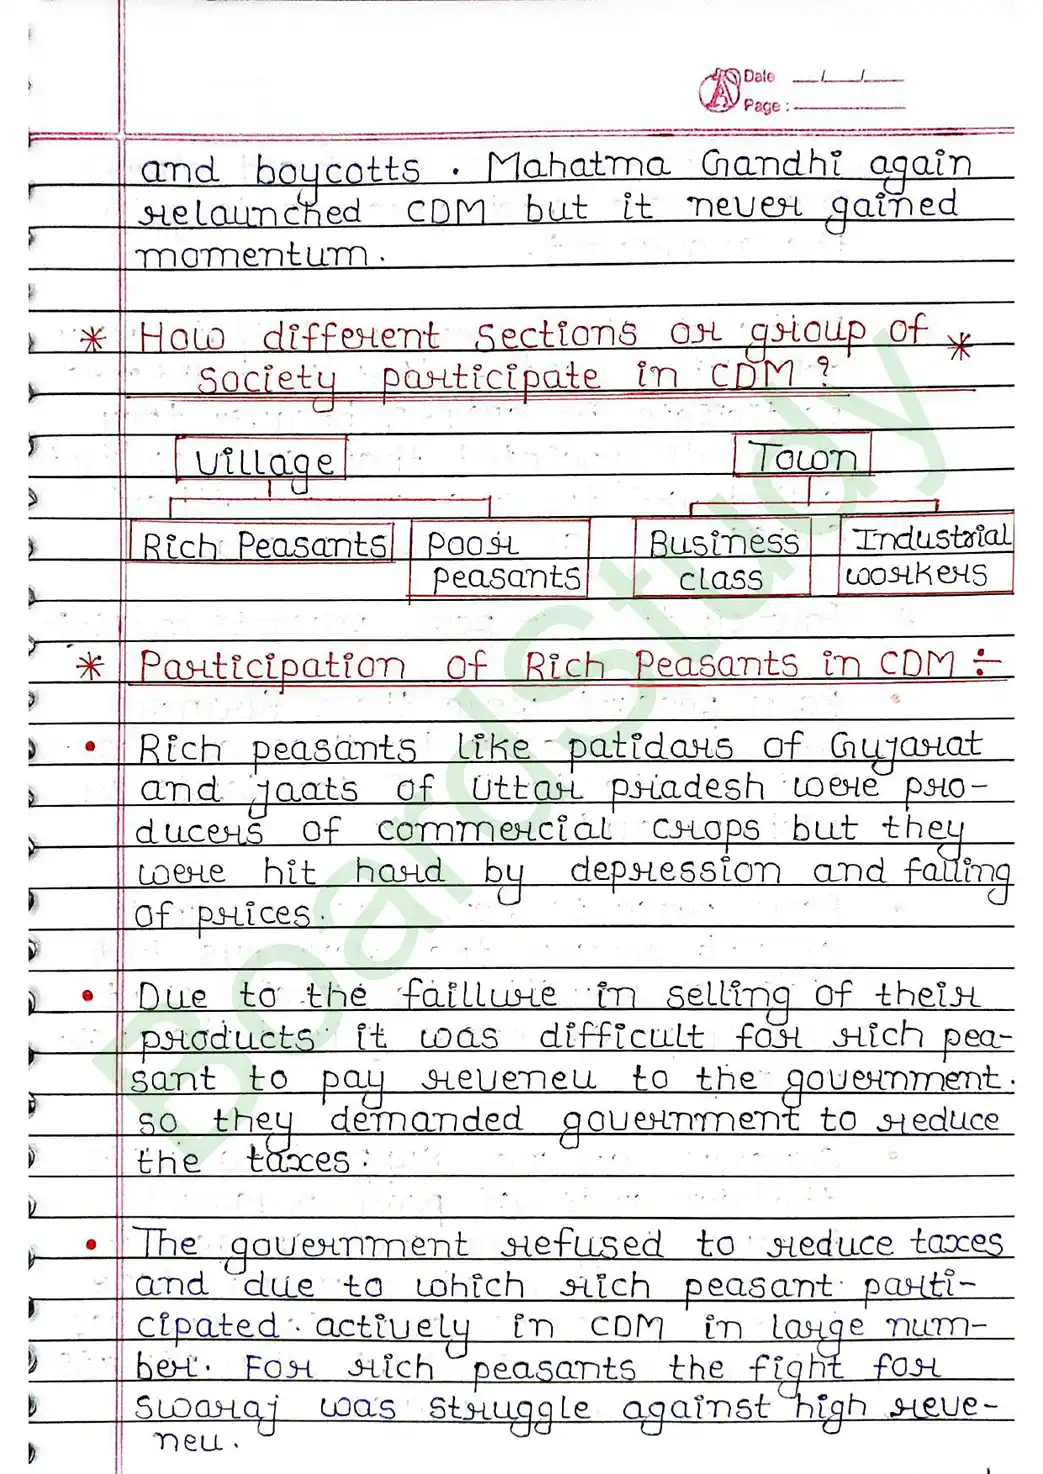 Date __/__/__
Page : ______
and boycotts. Mahatma Gandhi again
relaunched CDM but it never gained
momentum.
* How different sections or group of *
society participate in CDM ?
Village
Town
Rich Peasants
Poor
peasants
Business
class
Industrial
workers
* Participation of Rich Peasants in CDM ÷
• Rich peasants like patidars of Gujarat
and jaats of Uttar pradesh were pro-
ducers of commercial crops but they
were hit hard by depression and falling
of prices.
• Due to the faillure in selling of their
products it was difficult for rich pea-
sant to pay reveneu to the government.
so they demanded government to reduce
the taxes.
• The government refused to reduce taxes
and due to which rich peasant parti-
cipated actively in CDM in large num-
ber. For rich peasants the fight for
swaraj was struggle against high reve-
neu.
BoardStudy